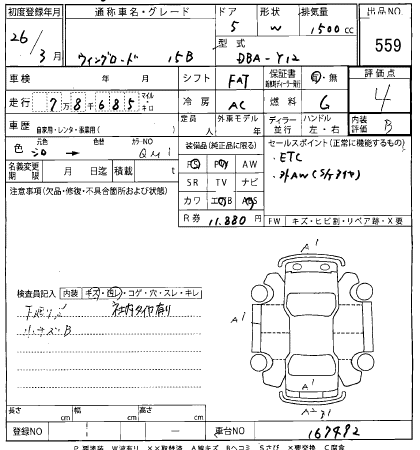 初度登録年月 通称車名・グレード ドア 形状 排気量 出品NO
26/3月 ウィングロード 15B 5 W 1500cc 559
型式 DBA-Y12
車検 年 月 シフト FAT 保証書 有・無 評価点
走行 7万8千685 マイル・キロ 冷房 AC 燃料 G 4
車歴 自家用・レンタ・事業用( ) 定員 人 外車モデル 年 ディラー・並行 ハンドル 左・右 内装評価 B
色 元色 色替 カラーNO 装備品(純正品に限る) セールスポイント(正常に機能するもの)
QM1 PS PW AW ・ETC
名義変更期限 月 日迄 積載 t SR TV ナビ ・外AW(S/Tタイヤ)
注意事項(欠品・修復・不具合箇所および状態) カワ エアB ABS
R券 11.880円 FW キズ・ヒビ割・リペア跡・X要
A1
A1
A1
検査員記入 内装 キズ・汚レ・コゲ・穴・スレ・キレ
下廻りサビ 社内タイヤ有り
小キズB
長さ cm 幅 cm 高さ cm
登録NO 車台NO 167492
P要塗装 W波有り ××取替済 A線キズ Bヘコミ Sさび ×要交換 C腐食